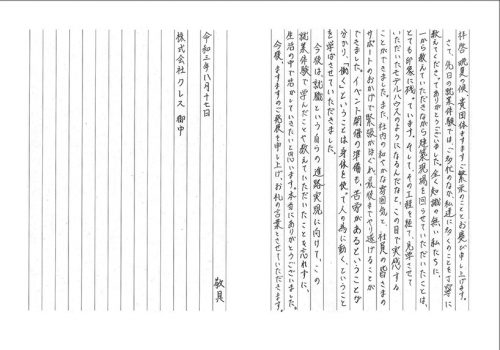 拝啓 晩夏の候、貴団体ますますご繁栄のこととお慶び申し上げます。
さて、先日の就業体験では、ご多忙のなか私達に多くのことを丁寧に
教えてくださってありがとうございました。全く知識の無い私たちに、
一から教えていただきながら建築現場を回らせていただいたことは、
とても印象に残っています。そして、その工程を経て、見学させて
いただいたモデルハウスのようになるんだなと、この目で実感する
ことができました。また、社内の和やかな雰囲気と、社員の皆さまの
サポートのおかげで緊張がほぐれ、最後までやり遂げることが
できました。イベント開催の準備も、苦労があるということが
分かり、「働く」ということは身体を使って人の為に動く、ということ
を学ばせていただきました。
今後は、就職という自らの進路実現に向けて、この
就業体験で学んだことや教えていただいたことを忘れずに、
生活の中で活かしていきたいと思います。本当にありがとうございました。
今後、ますますのご発展を申し上げ、お礼の言葉とさせていただきます。
敬具
令和三年八月十七日
株式会社クレス 御中